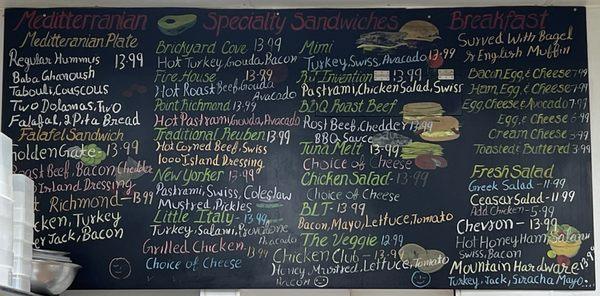 Mediterranean
Mediteranian Plate
Regular Hummus 13.99
Baba Ghanoush
Tabouli, Couscous
Two Dolamas, Two
Falafal, 2 Pita Bread
Falafel Sandwich
olden Gate 13.99
Roast Beef, Bacon, Cheddar
Island Dressing
Richmond - 13.99
icken, Turkey
er Jack, Bacon
Specialty Sandwiches
Brickyard Cove 13.99
Hot Turkey, Gouda, Bacon
Fire House 13.99
Hot Roast Beef, Gouda
Avocado
Point Richmond 13.99
Hot Pastrami, Gouda, Avocado
Traditional Reuben 13.99
Hot Corned Beef, Swiss
1000 Island Dressing
New Yorker 13.99
Pastrami, Swiss, Coleslaw
Mustred, Pickles
Little Italy - 13.99
Turkey, Salami, Provolone
Avacado
Grilled Chicken, 13.99
Choice of Cheese
Mimi
Turkey, Swiss, Avacado 13.99
Invention 13.99
Pastrami, Chicken Salad, Swiss
BBQ Roast Beef
Rost Beef, Chedder 13.99
BBQ Sauce
Tuna Melt 13.99
Choice of Cheese
Chicken Salad - 13.99
Choice of Cheese
BLT - 13.99
Bacon, Mayo, Lettuce, Tomato
The Veggie 12.99
Chicken Club - 13.99
Honey Mustred, Lettuce, Tomato
Bacon
Breakfast
Surved With Bagel
Or English Muffin
Bacon, Egg, & Cheese 7.99
Ham, Egg, & Cheese 7.99
Egg, Cheese, & Avocado 7.99
Egg, & Cheese 6.99
Cream Cheese 3.99
Toasted & Buttered 3.99
Fresh Salad
Greek Salad - 11.99
Ceasar Salad - 11.99
Add Chicken - 5.99
Chevron - 13.99
Hot Honey Ham, Salami
Swiss, Bacon
Mountain Hardware 13.99
Turkey, Jack, Siracha Mayo